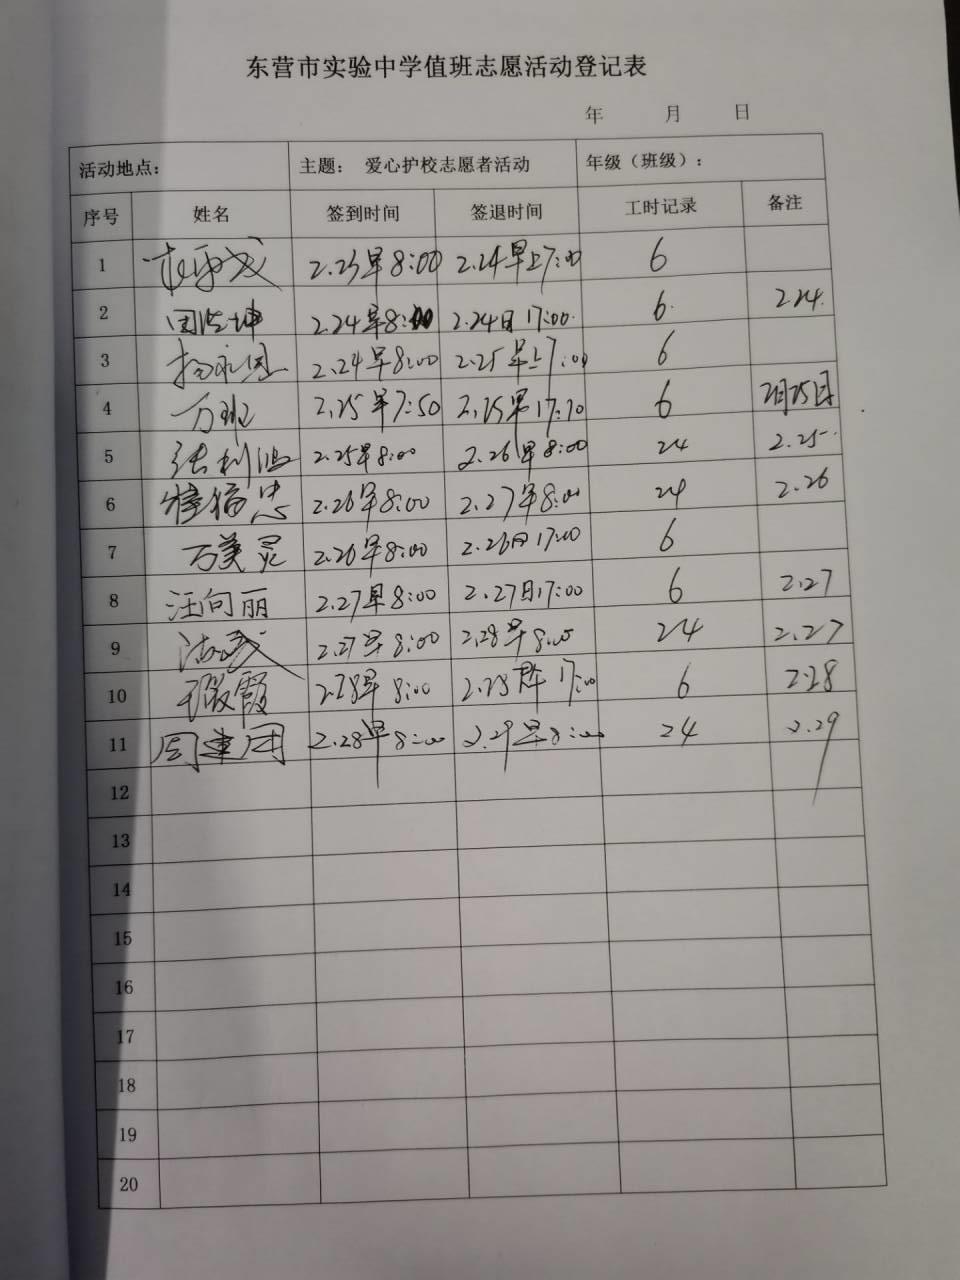 东营市实验中学值班志愿活动登记表
年 月 日
活动地点： 主题： 爱心护校志愿者活动 年级（班级）：
序号 姓名 签到时间 签退时间 工时记录 备注
1 2.23早8:00 2.24早上7:00 6
2 2.24早8:00 2.24日17:00 6 2.24
3 2.24早8:00 2.25早上7:00 6
4 2.25早7:50 2.25 17:10 6 2月25日
5 张利鸿 2.25早8:00 2.26早8:00 24 2.25
6 2.26早8:00 2.27早8:00 24 2.26
7 万美灵 2.26早8:00 2.26日17:00 6
8 汪向丽 2.27早8:00 2.27日17:00 6 2.27
9 2.27早8:00 2.28早8:00 24 2.27
10 2.28早8:00 2.28 17:00 6 2.28
11 周建团 2.28早8:00 2.29早8:00 24 2.29
12
13
14
15
16
17
18
19
20